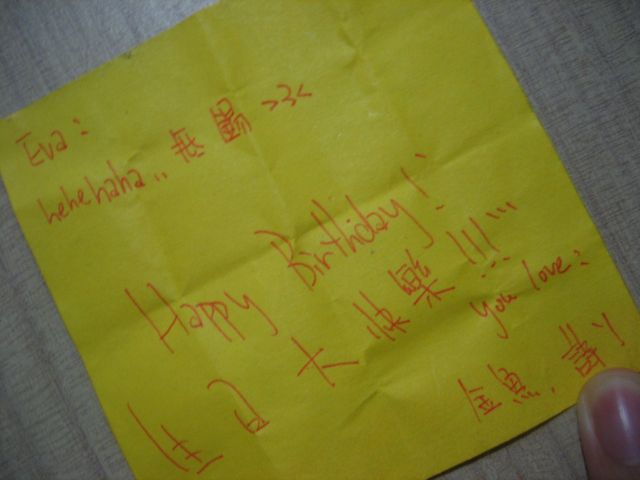 Eva:
hehehaha.. 無 >3<
Happy Birthday!
生日大快樂!!!...
you love:
金魚,